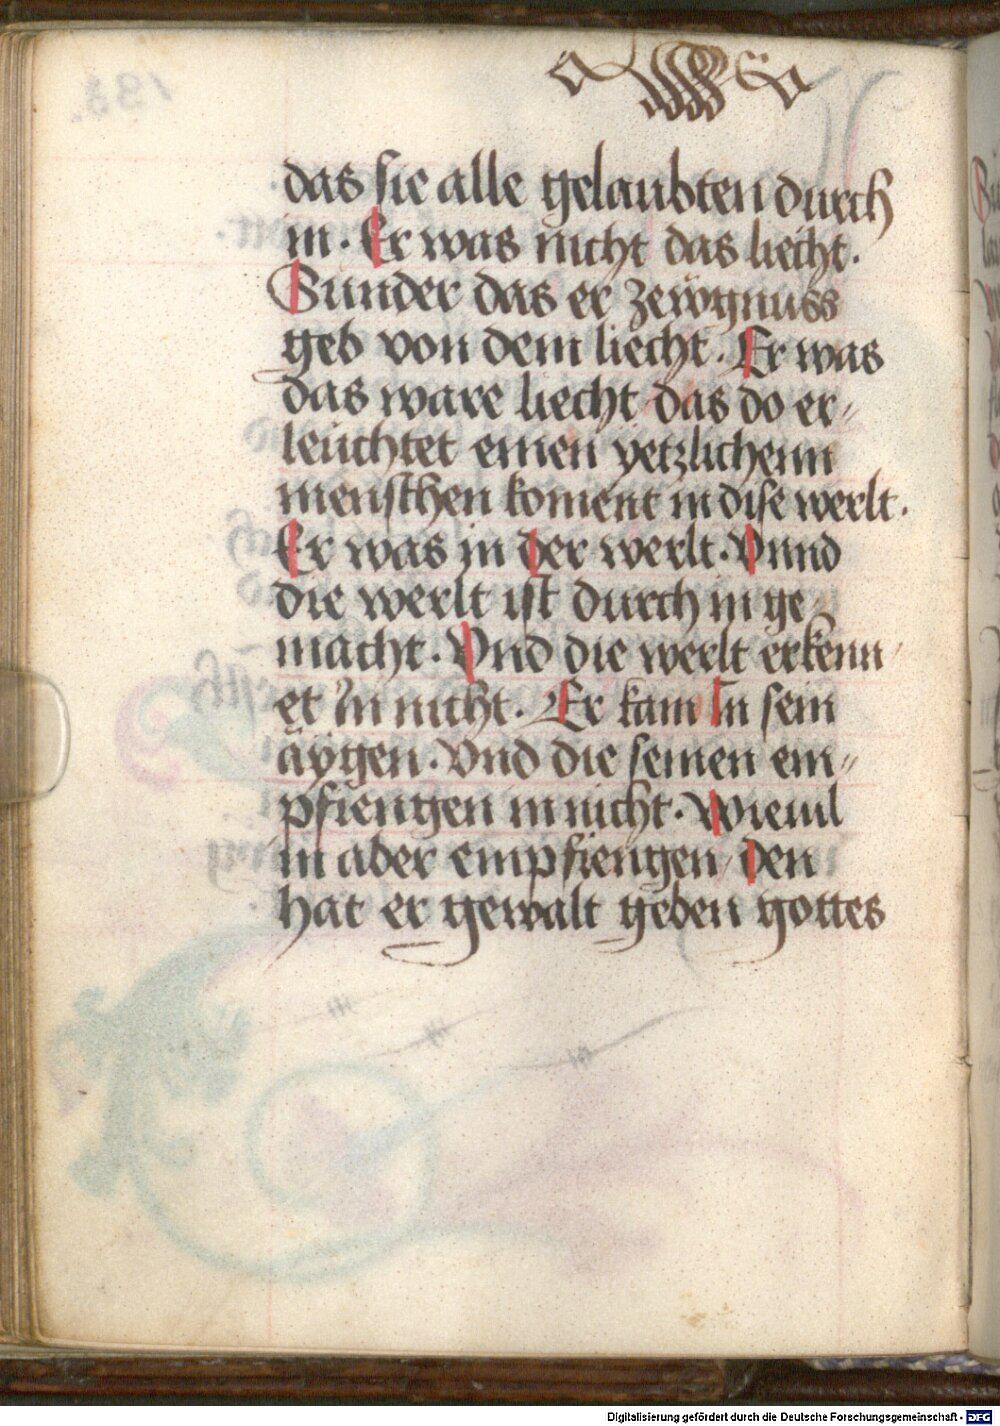 das sie alle gelaubten durch
in. Er was nicht das liecht.
Sunder das er zewgnuss
geb von dem liecht. Er was
das ware liecht das do er⸗
leuchtet einen yetzlichenn
menschen koment in dise werlt.
Er was in der werlt. Vnnd
die werlt ist durch in ge
macht. Vnd die werlt erkenn
et In nicht. Er kam In sein
aygen. Vnd die seinen em⸗
pfiengen in nicht. Wieuil
in aber empfiengen den
hat er gewalt geben gottes
Digitalisierung gefördert durch die Deutsche Forschungsgemeinschaft - DFG